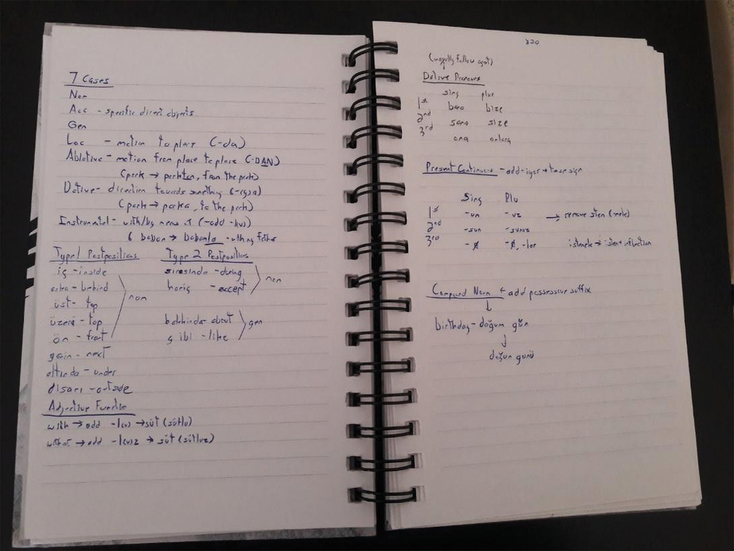 7 Cases
Nom
Acc - specific direct objects
Gen
Loc - motion to place (-da)
Ablative - motion from place to place (-DAN)
(park → parktan, from the park)
Dative - direction towards something
(park → parka, to the park)
Instrumental - with/by
baban → babanla
Type 1 Postpositions Type 2 Postpositions
iç - inside sırasında - during
arka - behind hariç - except nom
üst - top nom
üzeri - top hakkında - about gen
ön - front gibi - like
yan - next
altında - under
dışarı - outside
Adjective
with → add → süt (sütlü)
without → add → süt
(usually follow
Dative Pronouns
sing plur
1st bana bize
2nd sana size
3rd ona onlara
Present Continuous - add -iyor + tense sign
Sing Plu
1st -um -uz → remove
2nd -sun -sunuz
3rd -ø -ø, -lar
Compound Noun ← add possessive suffix
↓
birthday - doğum gün
↓
doğum günü